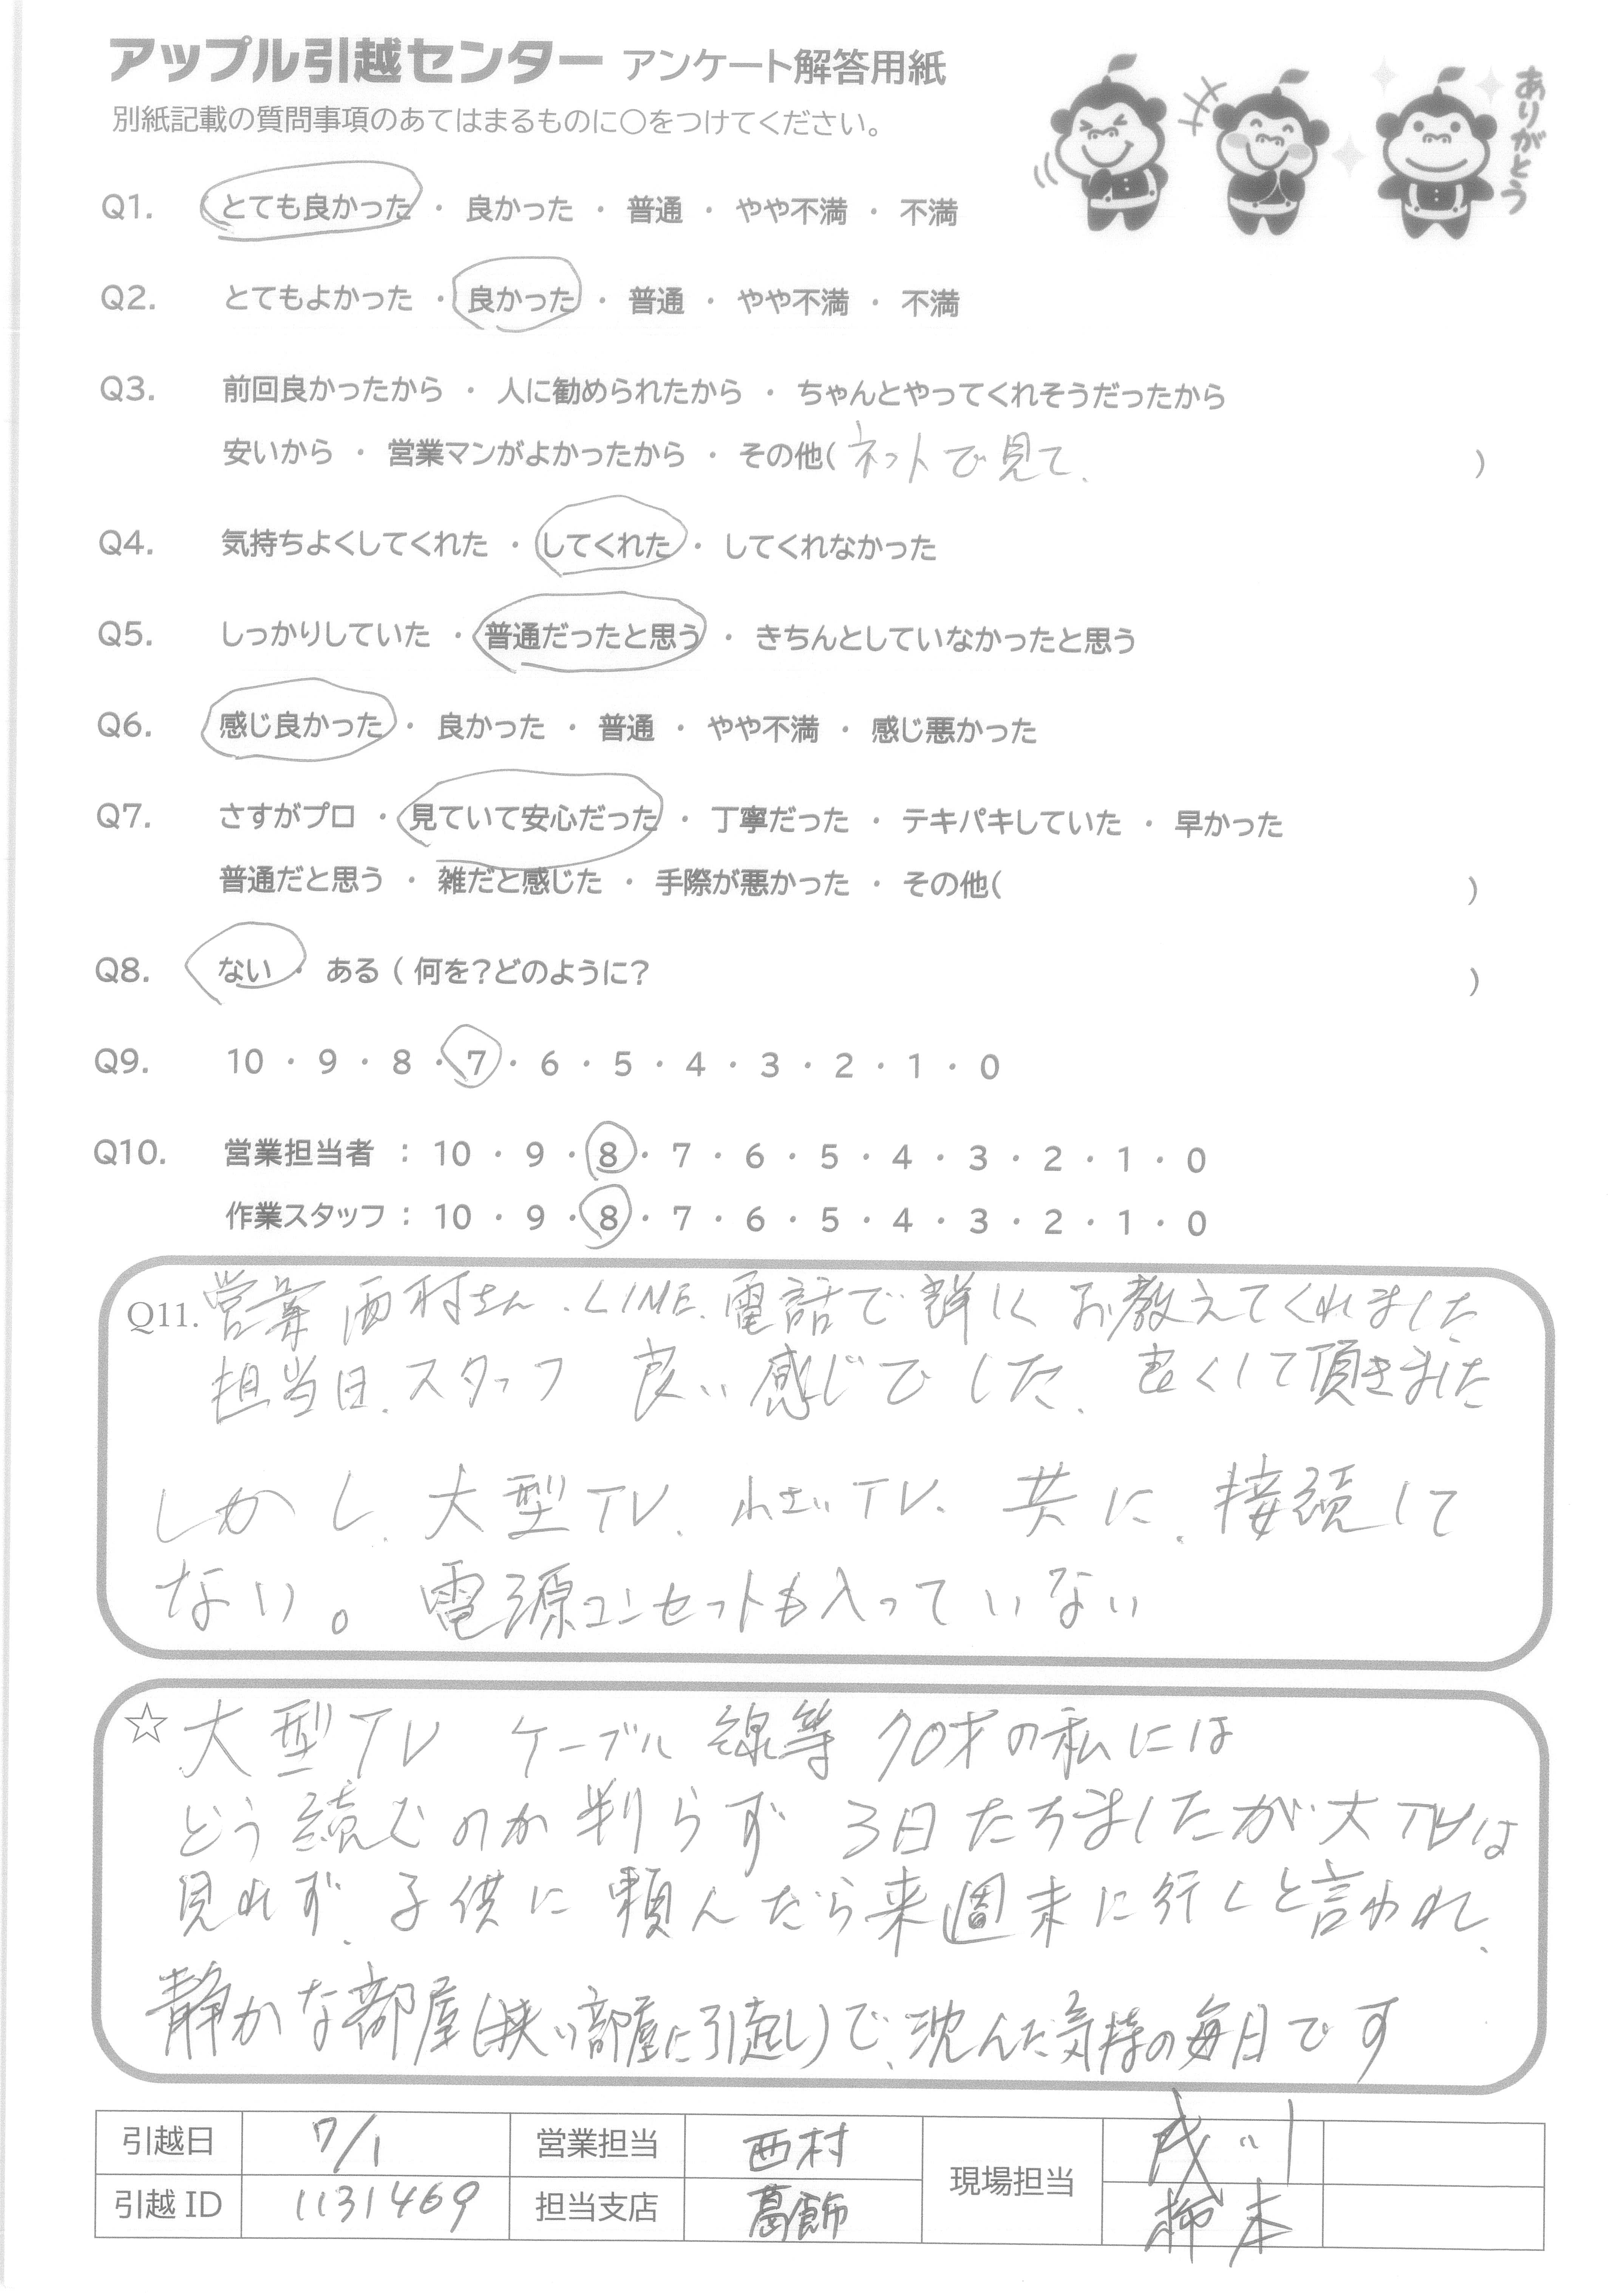 アップル引越センター アンケート解答用紙
別紙記載の質問事項のあてはまるものに○をつけてください。
ありがとう
Q1. とても良かった ・ 良かった ・ 普通 ・ やや不満 ・ 不満
Q2. とてもよかった ・ 良かった ・ 普通 ・ やや不満 ・ 不満
Q3. 前回良かったから ・ 人に勧められたから ・ ちゃんとやってくれそうだったから
安いから ・ 営業マンがよかったから ・ その他( ネットで見て、 )
Q4. 気持ちよくしてくれた ・ してくれた ・ してくれなかった
Q5. しっかりしていた ・ 普通だったと思う ・ きちんとしていなかったと思う
Q6. 感じ良かった ・ 良かった ・ 普通 ・ やや不満 ・ 感じ悪かった
Q7. さすがプロ ・ 見ていて安心だった ・ 丁寧だった ・ テキパキしていた ・ 早かった
普通だと思う ・ 雑だと感じた ・ 手際が悪かった ・ その他( )
Q8. ない ・ ある ( 何を?どのように? )
Q9. 10 ・ 9 ・ 8 ・ 7 ・ 6 ・ 5 ・ 4 ・ 3 ・ 2 ・ 1 ・ 0
Q10. 営業担当者 : 10 ・ 9 ・ 8 ・ 7 ・ 6 ・ 5 ・ 4 ・ 3 ・ 2 ・ 1 ・ 0
作業スタッフ : 10 ・ 9 ・ 8 ・ 7 ・ 6 ・ 5 ・ 4 ・ 3 ・ 2 ・ 1 ・ 0
Q11. 営業 西村さん、LINE、電話で詳しくお教えてくれました
担当日、スタッフ 良い感じでした、良くして頂きました
しかし、大型TV、小さいTV、共に、接続して
ない。電源コンセットも入っていない
☆ 大型TV ケーブル線等 70才の私には
どう続むのか判らず 3日たちましたが大TVは
見れず、子供に頼んだら来週末に行くと言われ、
静かな部屋(狭い部屋に引越し)で、沈んだ気持の毎日です
引越日 7/1 営業担当 西村 現場担当 戌川
引越ID 1131469 担当支店 葛飾 柳本